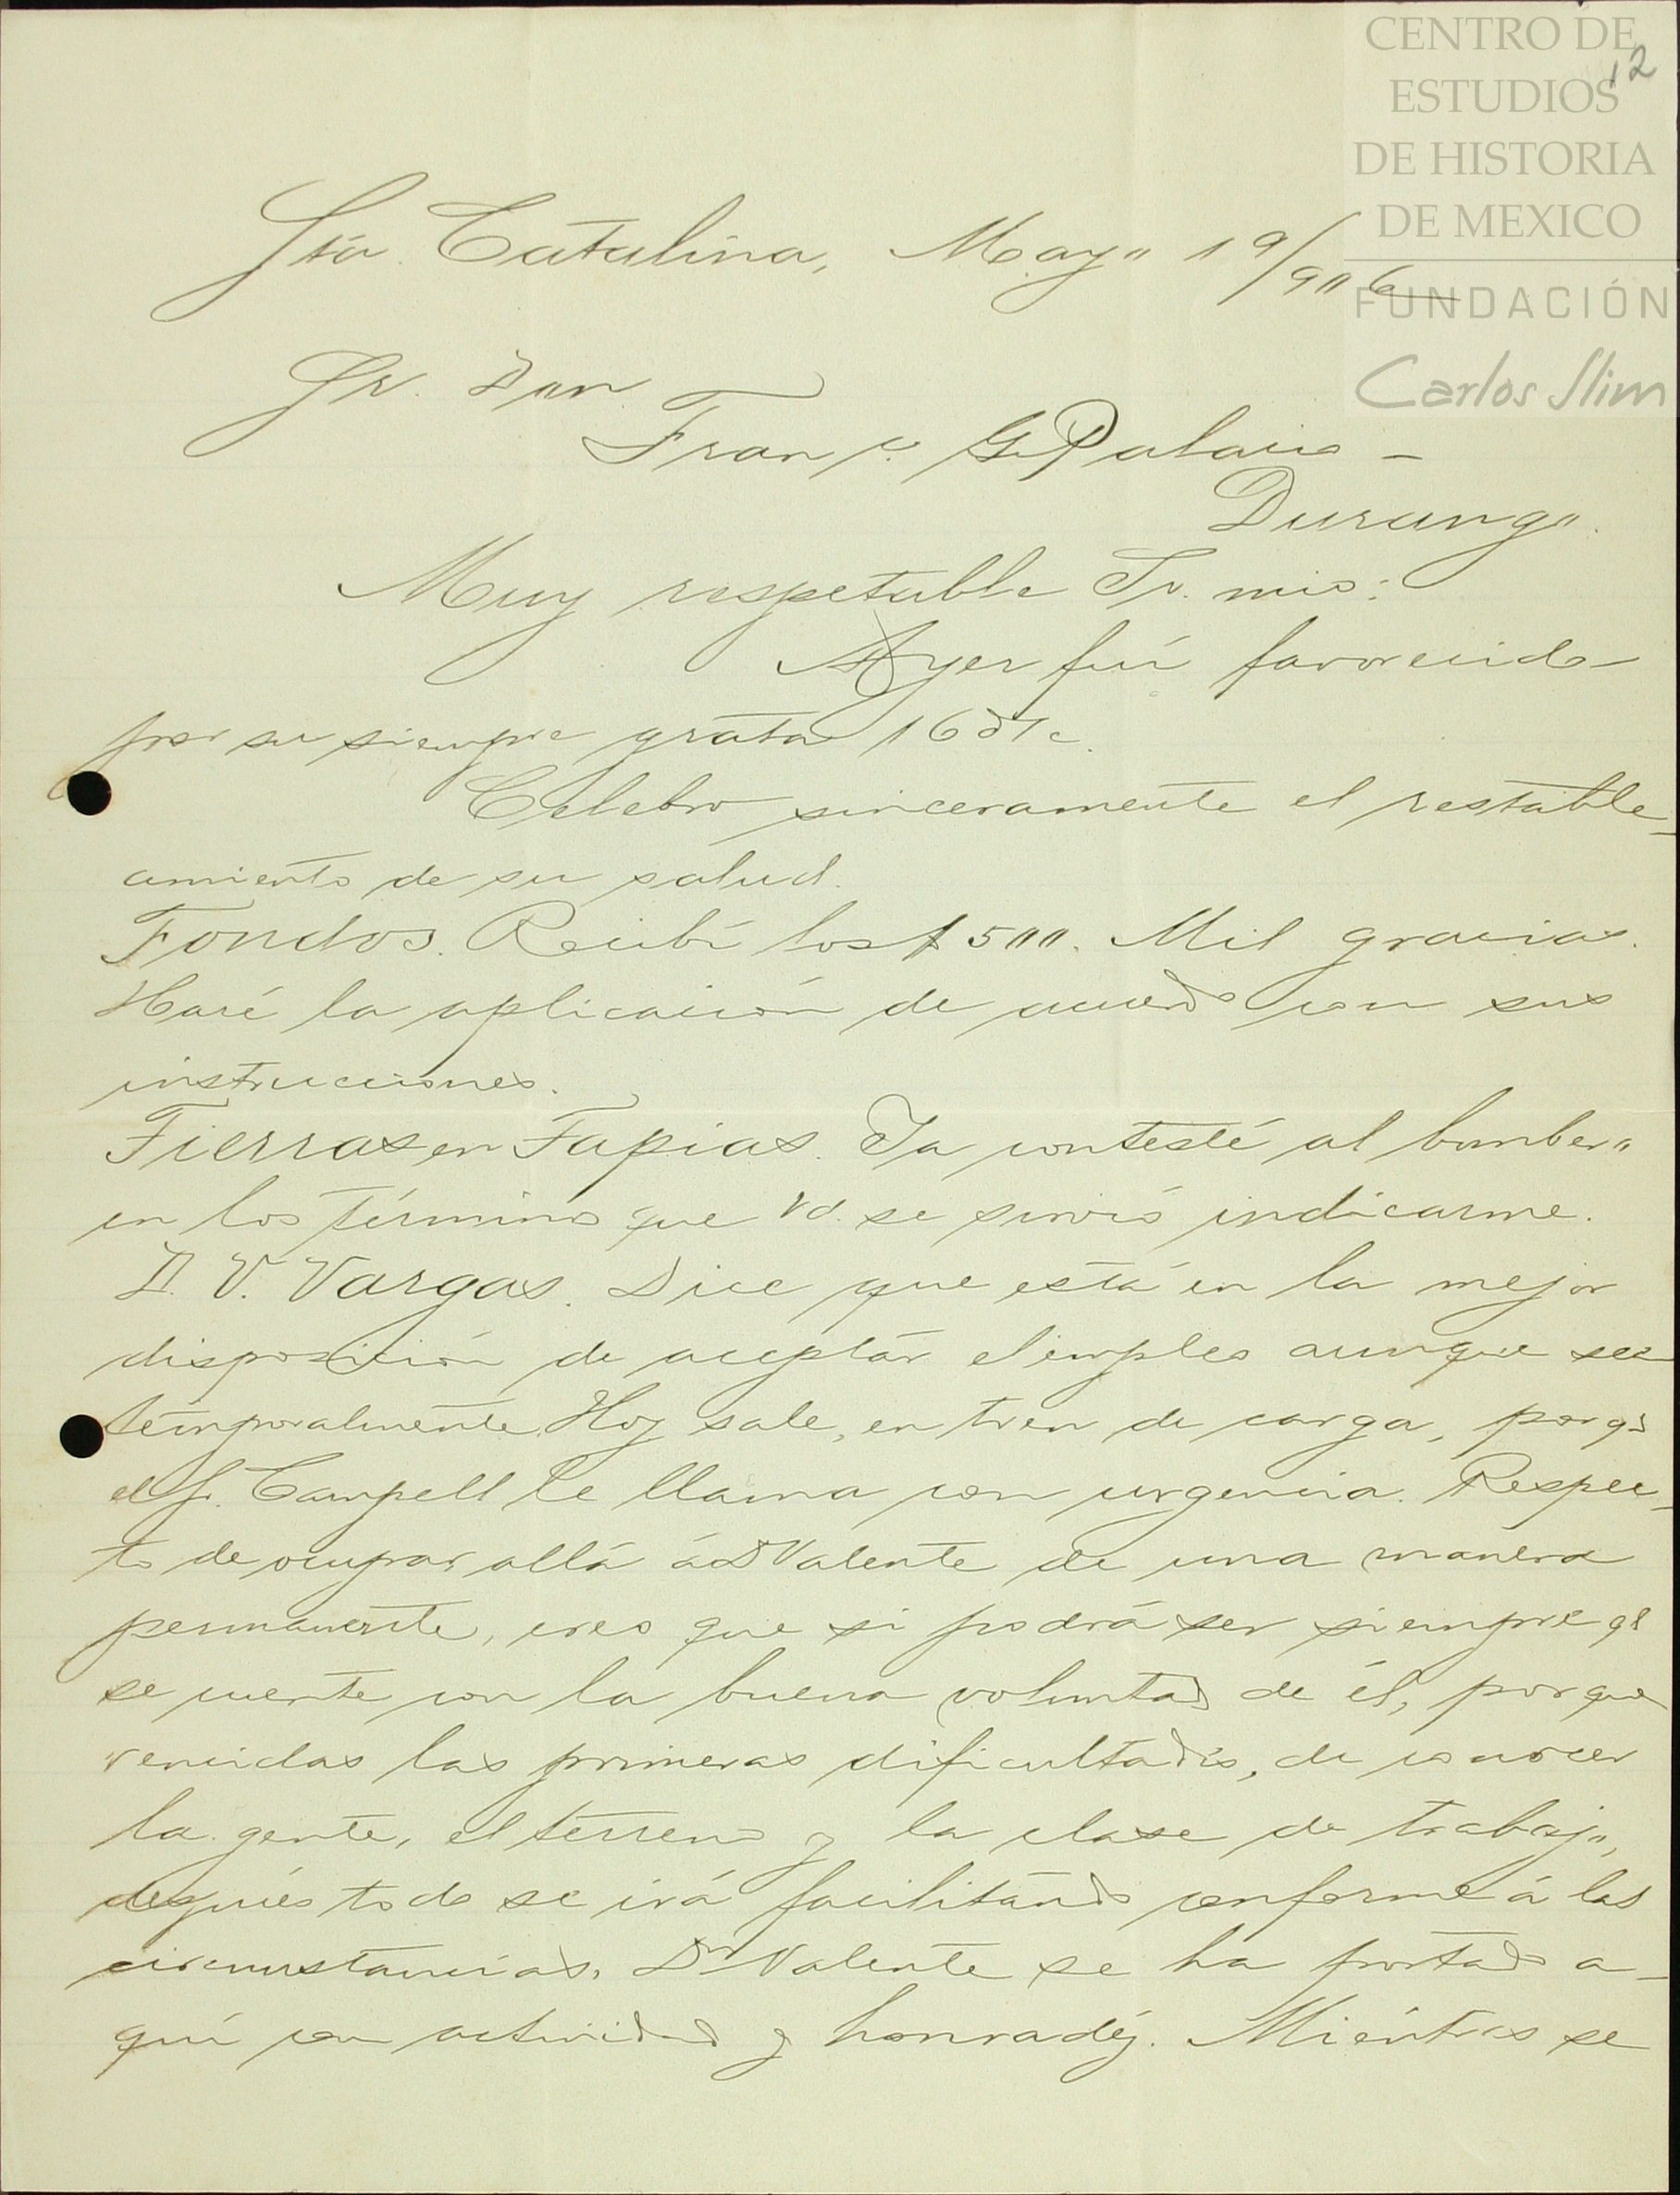 CENTRO DE
ESTUDIOS
DE HISTORIA
DE MEXICO
FUNDACIÓN
Carlos Slim
12
Sta. Catalina, Mayo 19/906
Sr. Don
Franco. G. Palacio-
Durango.
Muy respetable Sr. mio:
Ayer fuí favorecido
por su siempre grata 16 del c.
Celebro sinceramente el restable-
cimiento de su salud.
Fondos. Recibí los $500. Mil gracias.
Haré la aplicación de acuerdo con sus
instrucciones.
Tierras en Tapias. Ya contesté al bombero
en los términos que Vd. se sirvió indicarme.
D. V. Vargas. Dice que está en la mejor
disposición de aceptar el empleo aunque sea
temporalmente. Hoy sale, en tren de carga, porqe
el Sr. Campell le llama con urgencia. Respec-
to de ocupar allá á Dn Valente de una manera
permanente, creo que si podrá ser siempre qe
se cuente con la buena voluntad de él, porque
vencidas las primeras dificultades, de conocer
la gente, el terreno y la clase de trabajo,
después todo se irá facilitando conforme á las
circunstancias. Dn Valente se ha portado a-
quí con actividad y honradéz. Miéntras se